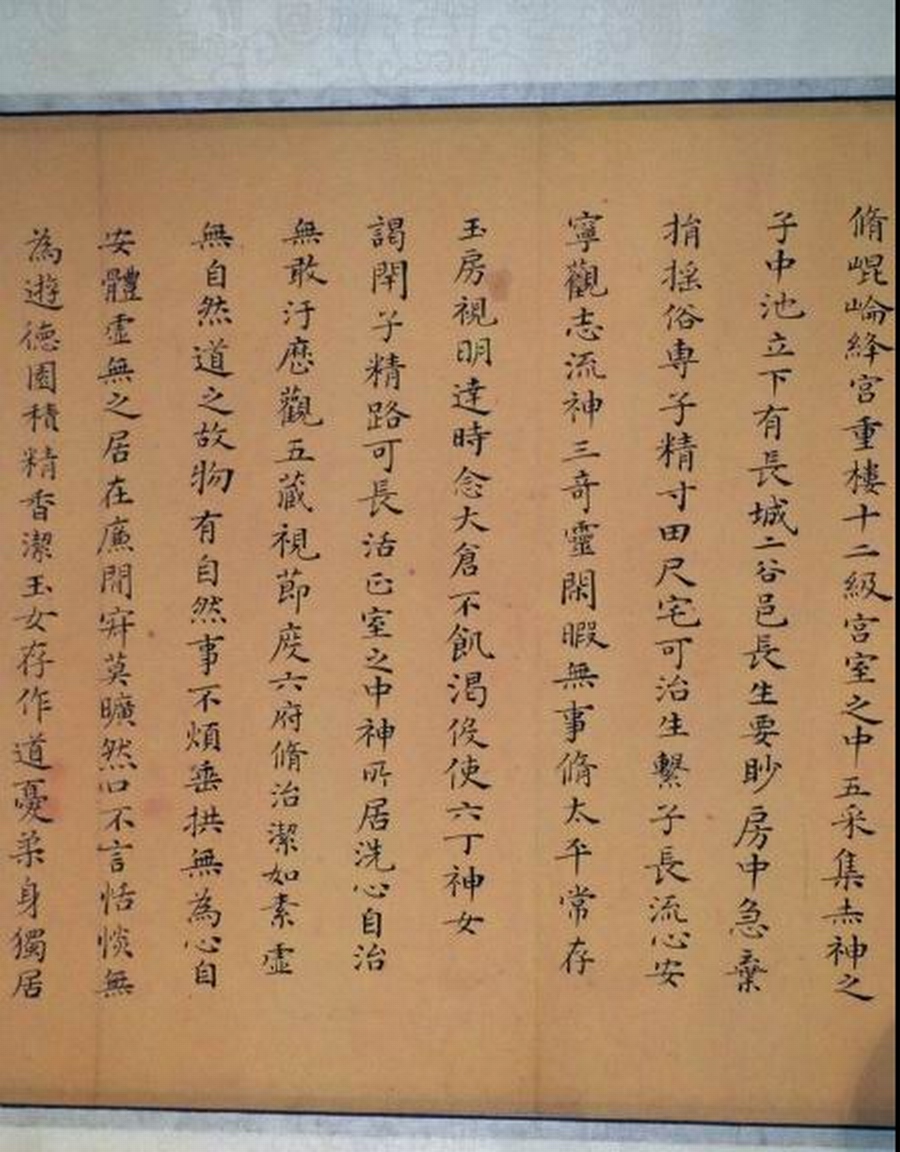 脩崐崘絳宮重樓十二級宮室之中五采集赤神之
子中池立下有長城二谷邑長生要眇房中急棄
捐搖俗専子精寸田尺宅可治生繫子長流心安
寧觀志流神三奇靈閑暇無事脩太平常存
玉房視明達時念大倉不飢渴俟使六丁神女
謁閇子精路可長活正室之中神所居洗心自治
無敢汙歷觀五藏視節度六府脩治潔如素虛
無自然道之故物有自然事不煩垂拱無為心自
安體虛無之居在廉閒㝥莫曠然口不言恬惔無
為遊德園積精香潔玉女存作道憂柔身獨居